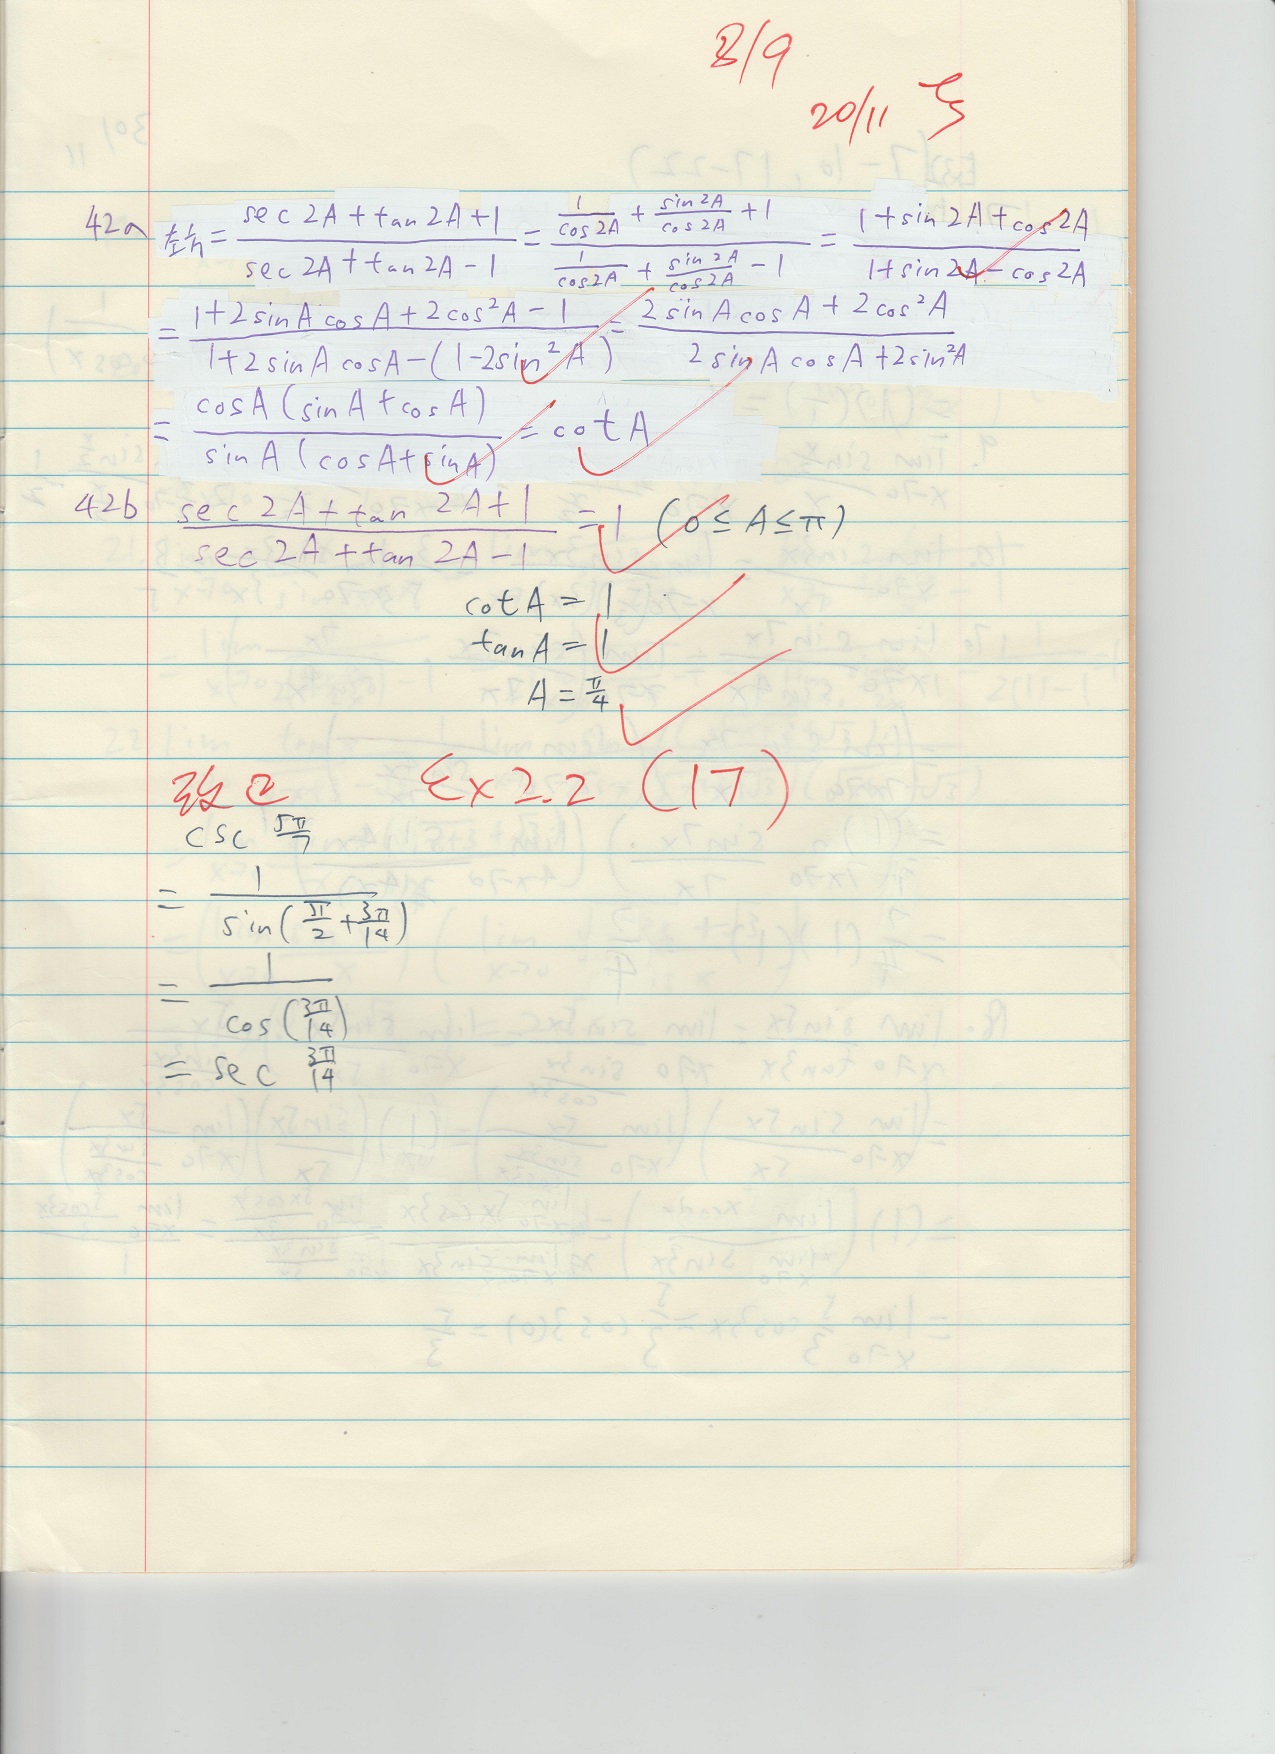 8/9
20/11
42a 左方 = (sec 2A + tan 2A + 1)/(sec 2A + tan 2A - 1) = (1/cos 2A + sin 2A/cos 2A + 1)/(1/cos 2A + sin 2A/cos 2A - 1) = (1 + sin 2A + cos 2A)/(1 + sin 2A - cos 2A)
= (1 + 2 sin A cos A + 2 cos² A - 1)/(1 + 2 sin A cos A - (1 - 2 sin² A)) = (2 sin A cos A + 2 cos² A)/(2 sin A cos A + 2 sin² A)
= (cos A (sin A + cos A))/(sin A (cos A + sin A)) = cot A
42b (sec 2A + tan 2A + 1)/(sec 2A + tan 2A - 1) = 1 (0 ≤ A ≤ π)
cot A = 1
tan A = 1
A = π/4
改正 Ex 2.2 (17)
csc 5π/7
= 1/sin(π/2 + 3π/14)
= 1/cos(3π/14)
= sec 3π/14